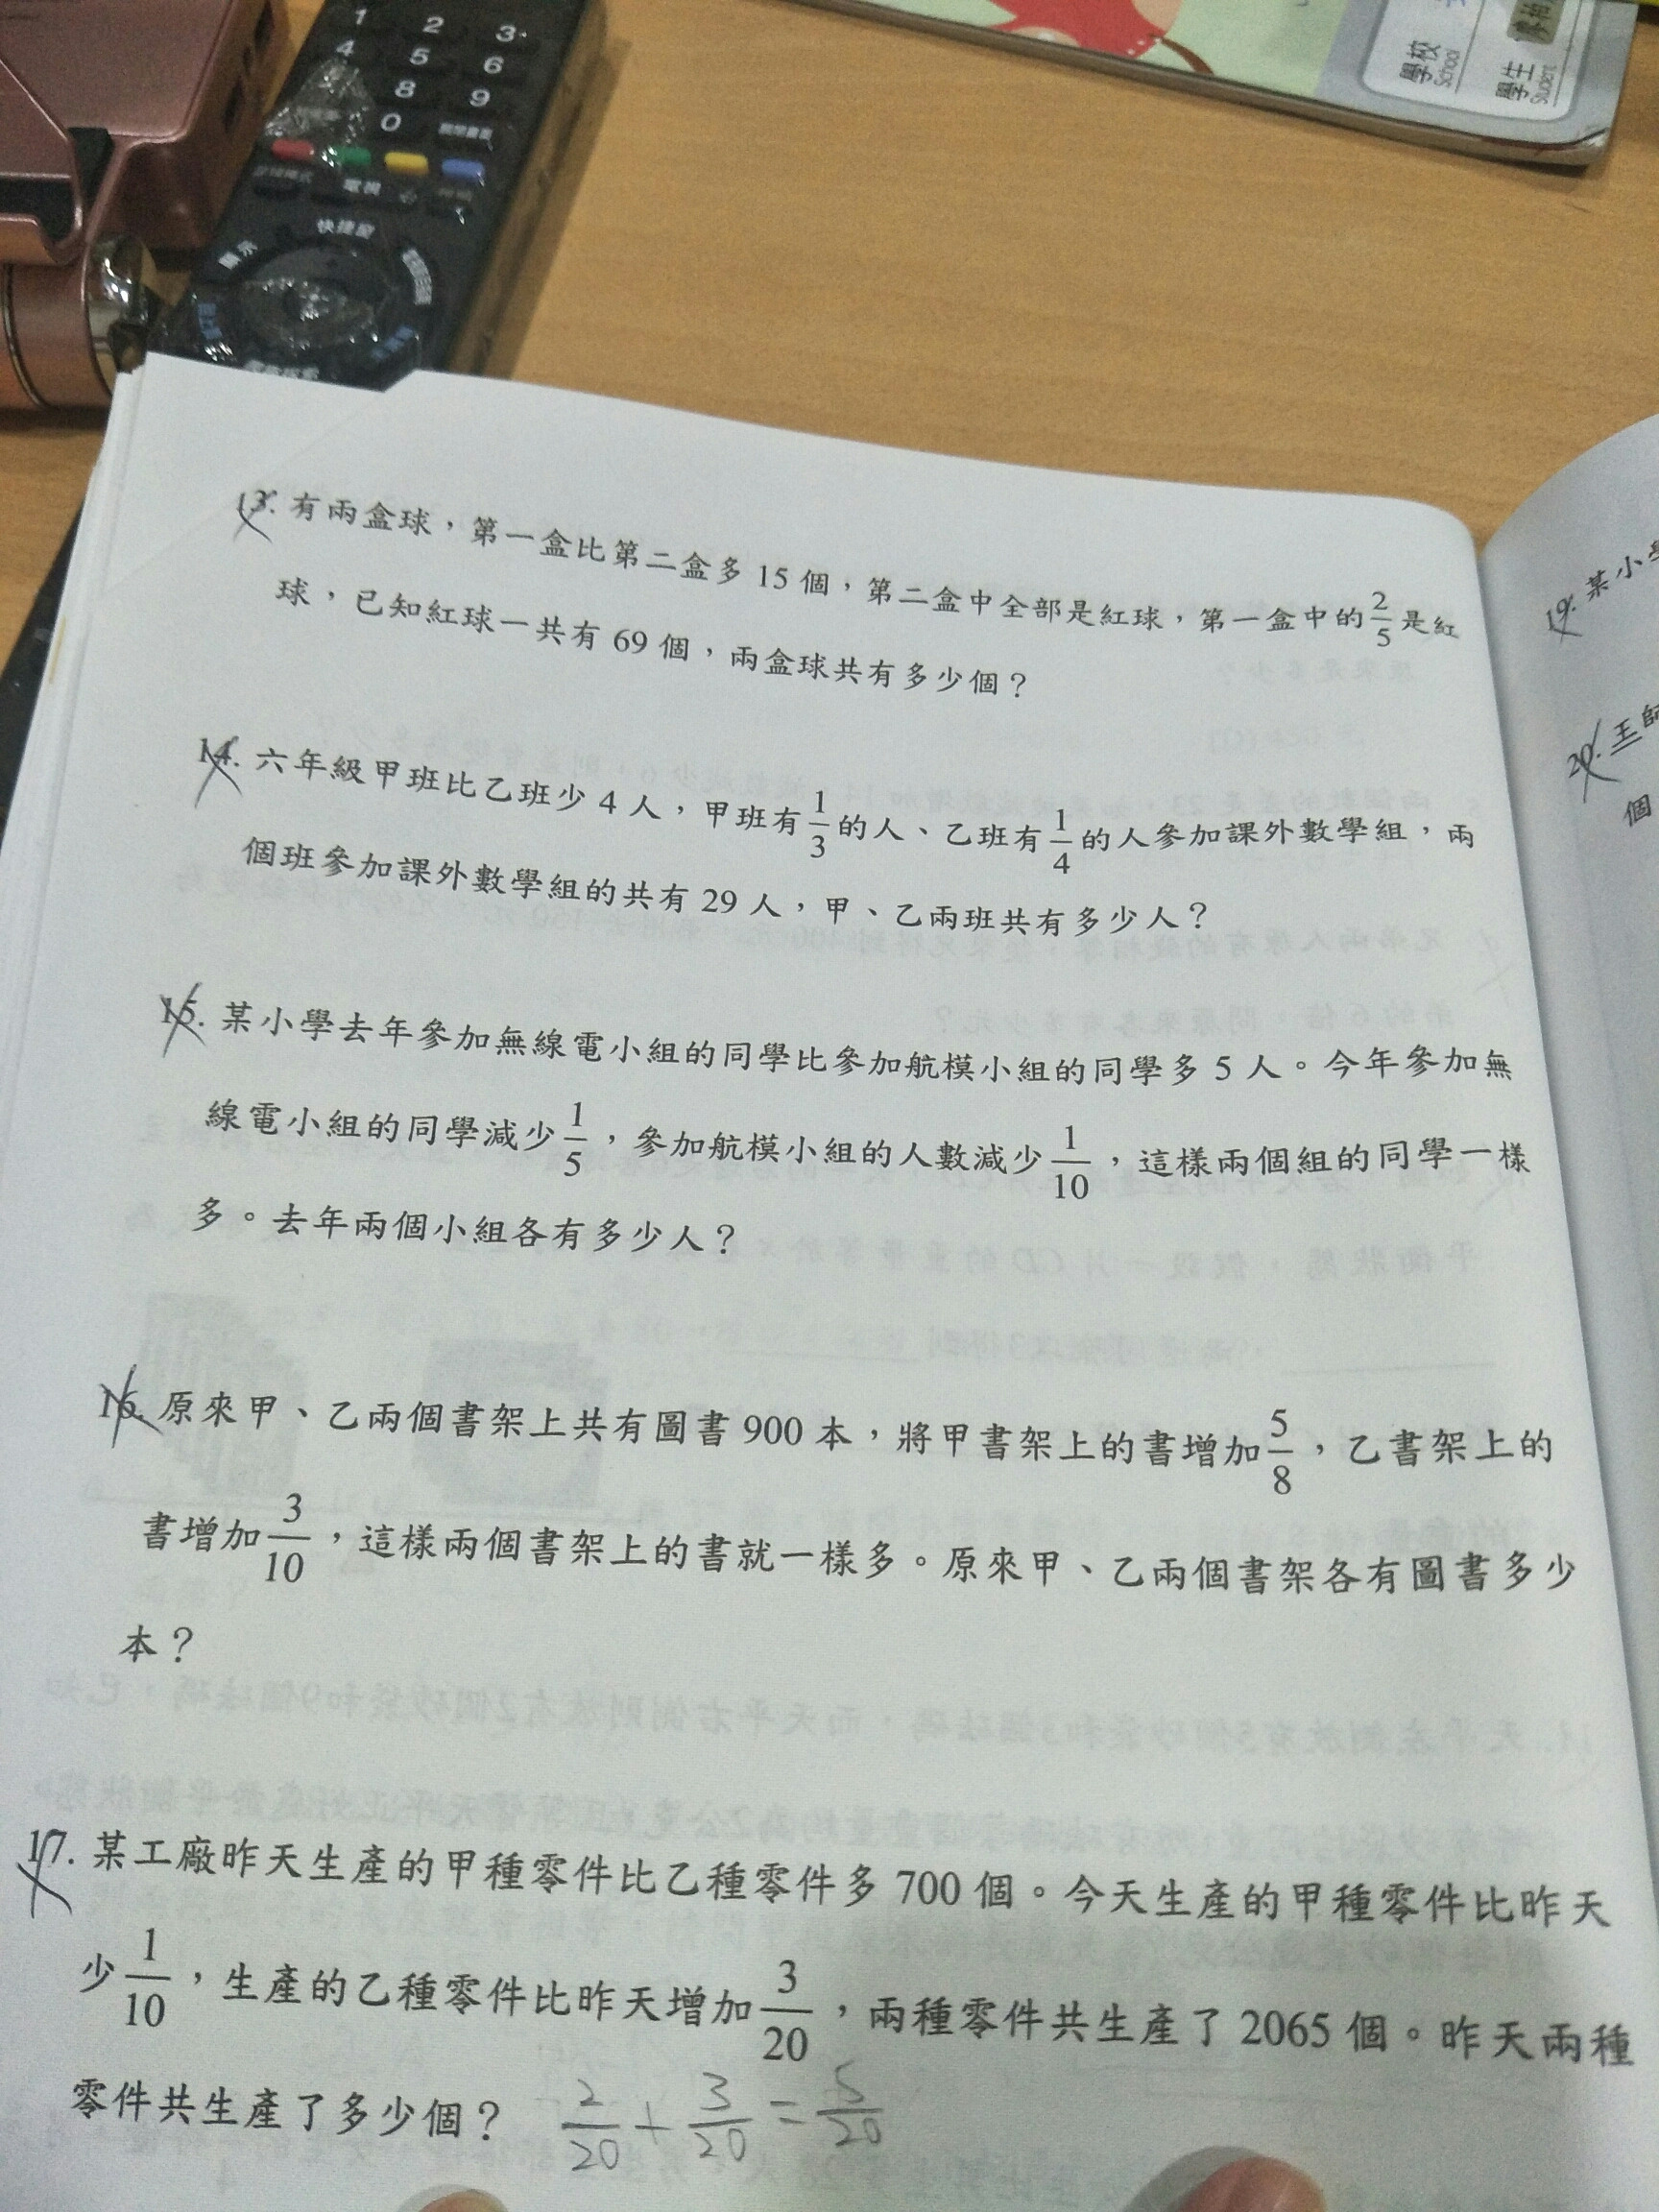 1 2 3
4 5 6
8 9
0
電視
快捷鍵
顯示
學校
School
學生
Student
13. 有兩盒球，第一盒比第二盒多 15 個，第二盒中全部是紅球，第一盒中的2/5是紅
球，已知紅球一共有 69 個，兩盒球共有多少個？
14. 六年級甲班比乙班少 4 人，甲班有1/3的人、乙班有1/4的人參加課外數學組，兩
個班參加課外數學組的共有 29 人，甲、乙兩班共有多少人？
15. 某小學去年參加無線電小組的同學比參加航模小組的同學多 5 人。今年參加無
線電小組的同學減少1/5，參加航模小組的人數減少1/10，這樣兩個組的同學一樣
多。去年兩個小組各有多少人？
16. 原來甲、乙兩個書架上共有圖書 900 本，將甲書架上的書增加5/8，乙書架上的
書增加3/10，這樣兩個書架上的書就一樣多。原來甲、乙兩個書架各有圖書多少
本？
17. 某工廠昨天生產的甲種零件比乙種零件多 700 個。今天生產的甲種零件比昨天
少1/10，生產的乙種零件比昨天增加3/20，兩種零件共生產了 2065 個。昨天兩種
零件共生產了多少個？ 2/20+3/20=5/20
19. 某小學
20. 王師
個